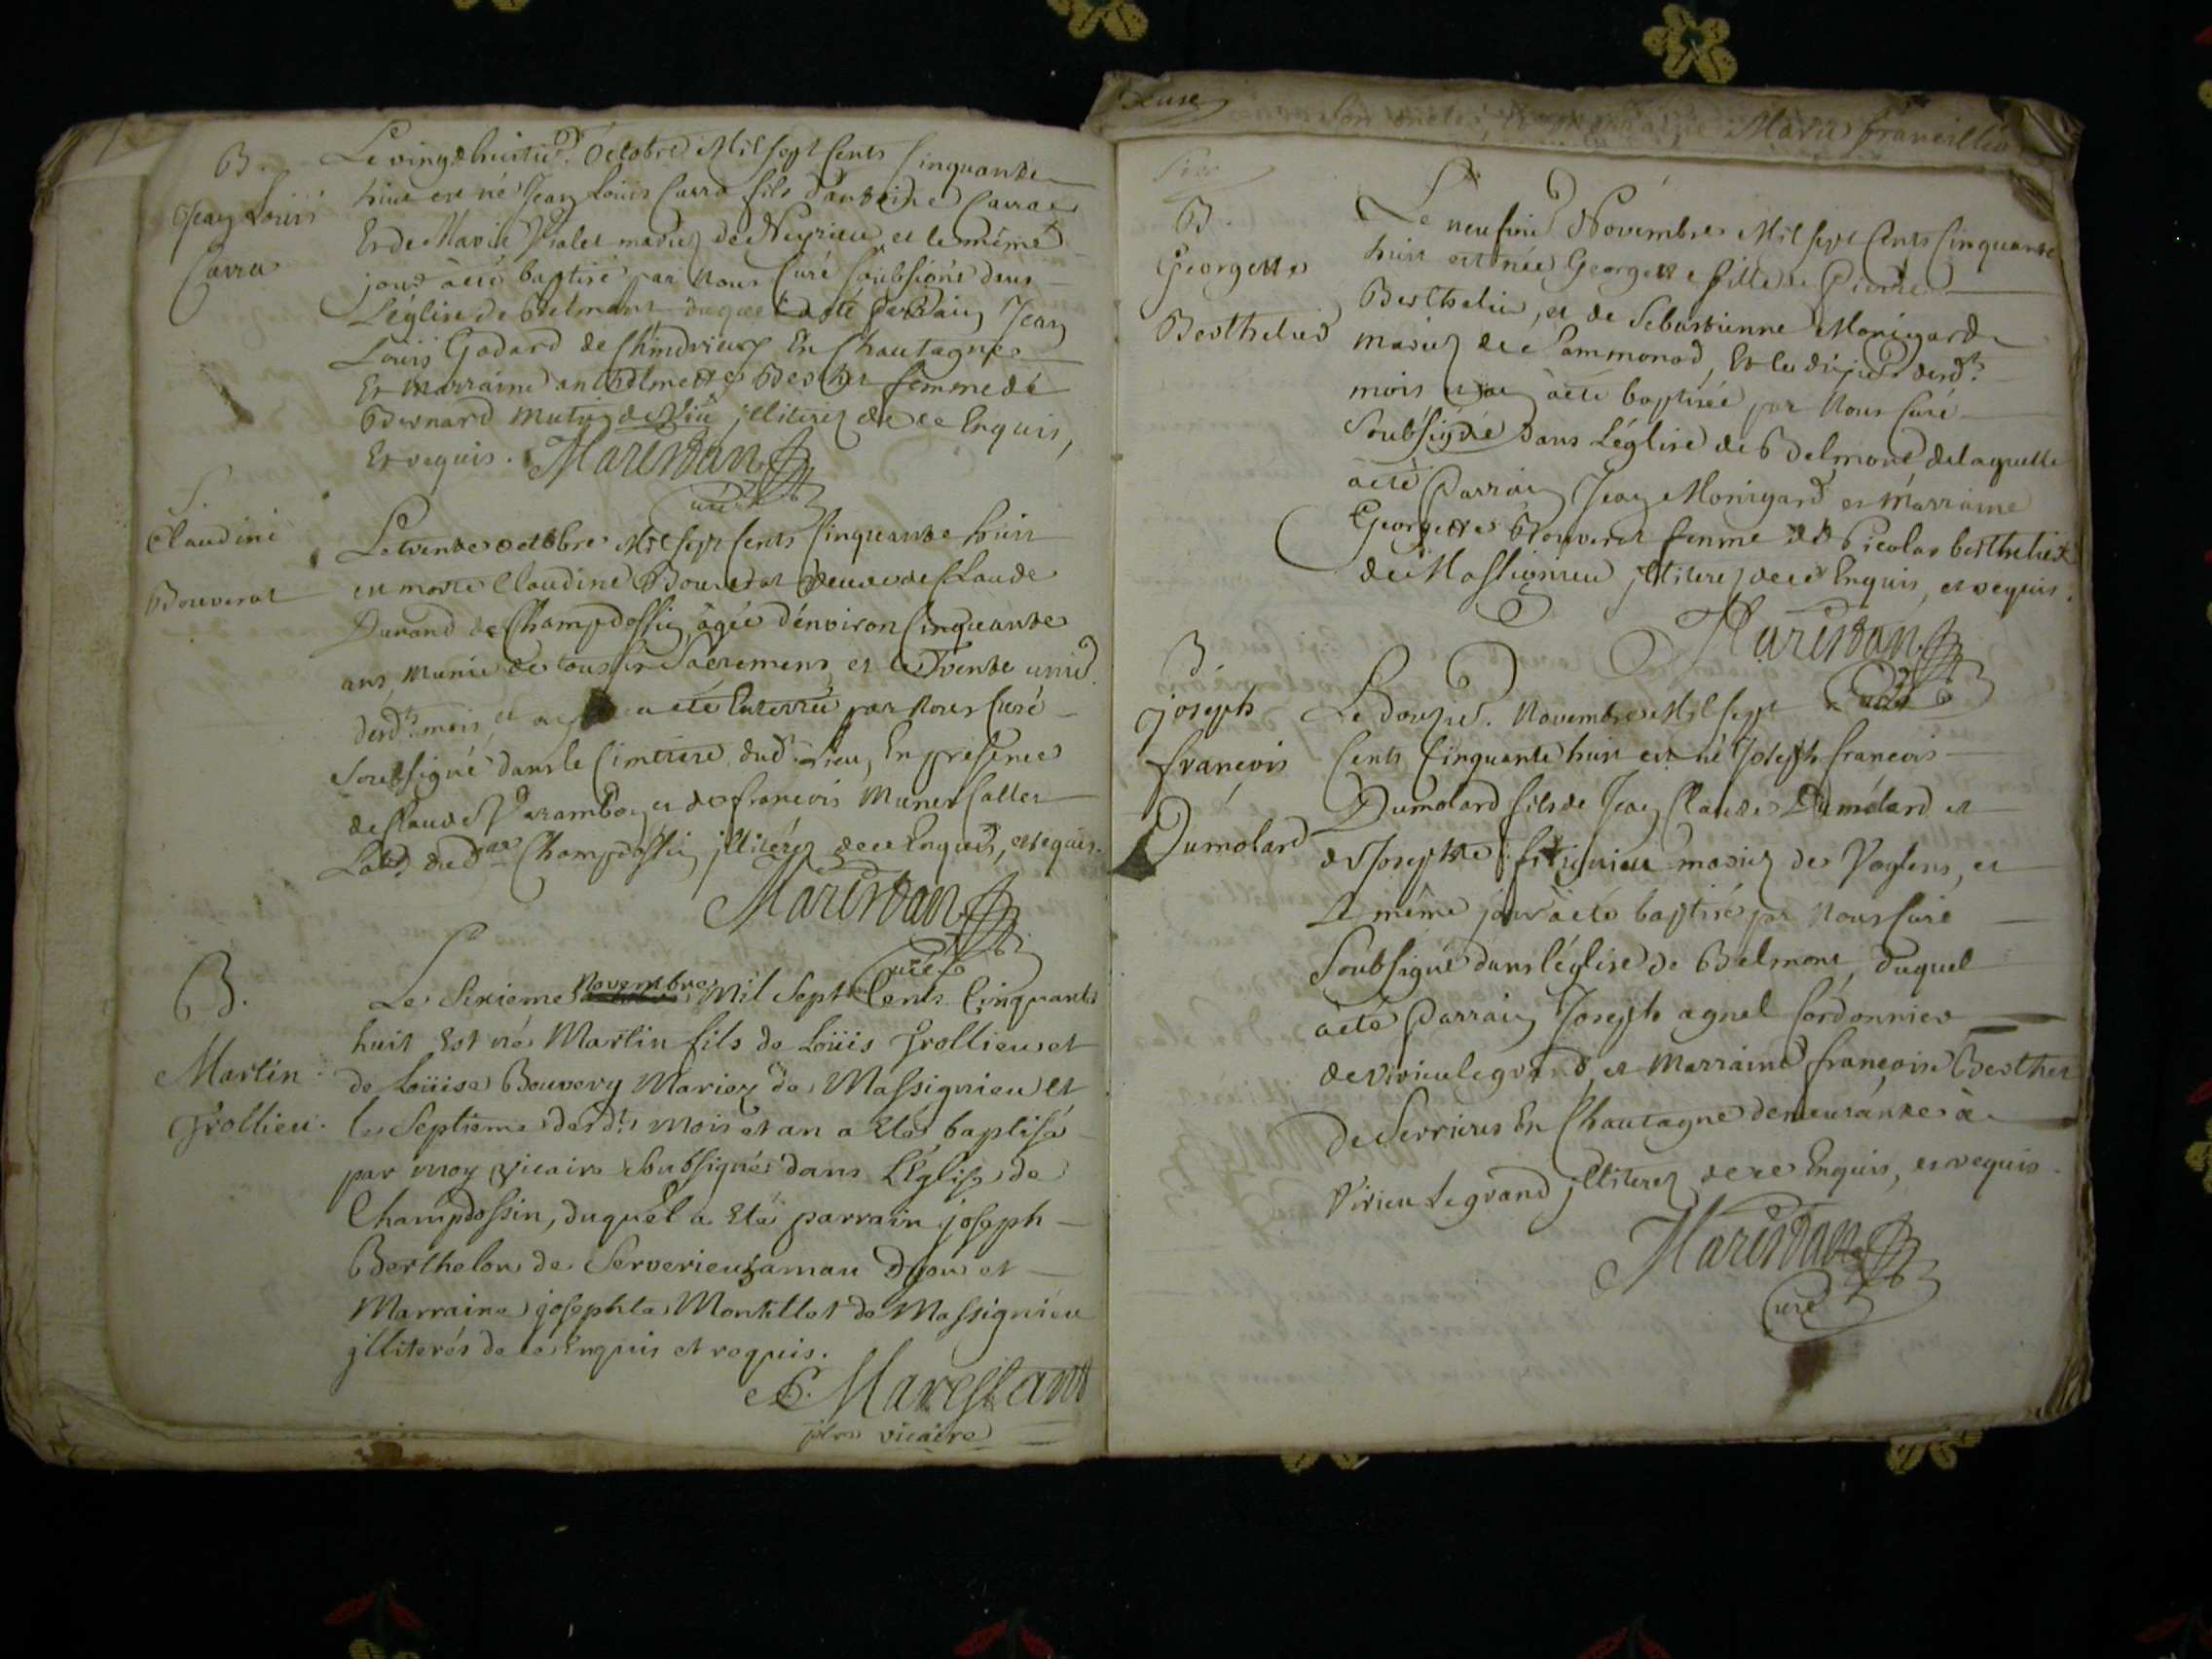 B.
Jean Louis
Carra
Le vingt huitie. Octobre Mil sept Cents Cinquante
huit est né Jean Louis Carra fils d'antoine Carra
Et de Marie mariez de Neyrieu et le même
jour a été baptisé par Nous Curé soubsigné dans
L'église de Belmont duquel a été Parrain Jean
Louis Godard de Chindrieux En Chautagne
Et Marraine anthelmette Berthet femme de
Bernard Mutin illiterez de ce Enquis,
Et requis. Marestan
curé
S.
Claudine
Bouverat
Le trente octobre Mil sept Cents Cinquante huit
est morte Claudine Bouverat veuve de Claude
Durand de Champdossin, âgée d'environ Cinquante
ans, Munie de tous les Sacremens, et le Trente unie.
desd. mois, et a été Enterrée par Nous Curé
soubsigné dans le Cimetiere dud. Lieu, En présence
de Claude Varambon et de françois Munet Caller
Lab. dud. Champdossin illitérez de ce Enquis, et requis.
Marestan
Curé
B.
Martin
Trollieu.
Le Sixieme Novembre Mil Sept Cents Cinquante
huit Est né Martin fils de Loüis Trollieu et
de Loüise Bouvery Mariez de Massignieu et
le Septieme desd. mois et an a Eté baptisé
par moy vicaire soubsigné dans L'Eglise de
Champdossin, duquel a Eté parrain joseph
Berthelon de Serverieu et
Marraine josephte Montillet de Massignieu
illiterés de ce Enquis et requis.
Marestant
ptre vicaire
Marie francillio
B.
Georgette
Berthelier
Le neufvie Novembre Mil sept Cents Cinquante
huit est née Georgette fille de Pierre
Berthelier, et de Sebastienne Monigard
mariez de Sammonod, Et le dixie. desd.
mois et an a été baptisée par Nous Curé
Soubsigné Dans L'église de Belmont de laquelle
a été Parrain Jean Monigard et Marraine
Georgette Bouverat femme de Nicolas berthelier
de Massignieu illiterez de ce Enquis, et requis.
Marestan
curé
B.
joseph
françois
Dumolard
Le Douzie. Novembre Mil sept
Cents Cinquante huit est né Joseph françois
Dumolard fils de Jean Claude Dumolard et
de Josephte fitignieu mariez de Voglens, et
le même jour a été baptisé par Nous Curé
Soubsigné dans l'église de Belmont, duquel
a été Parrain Joseph agnel Cordonnier
de virieu le grand, et Marraine françoise Berthet
De Serrieres En Chautagne demeurante à
Virieu Le grand illiterez de ce Enquis, et requis.
Marestan
Curé